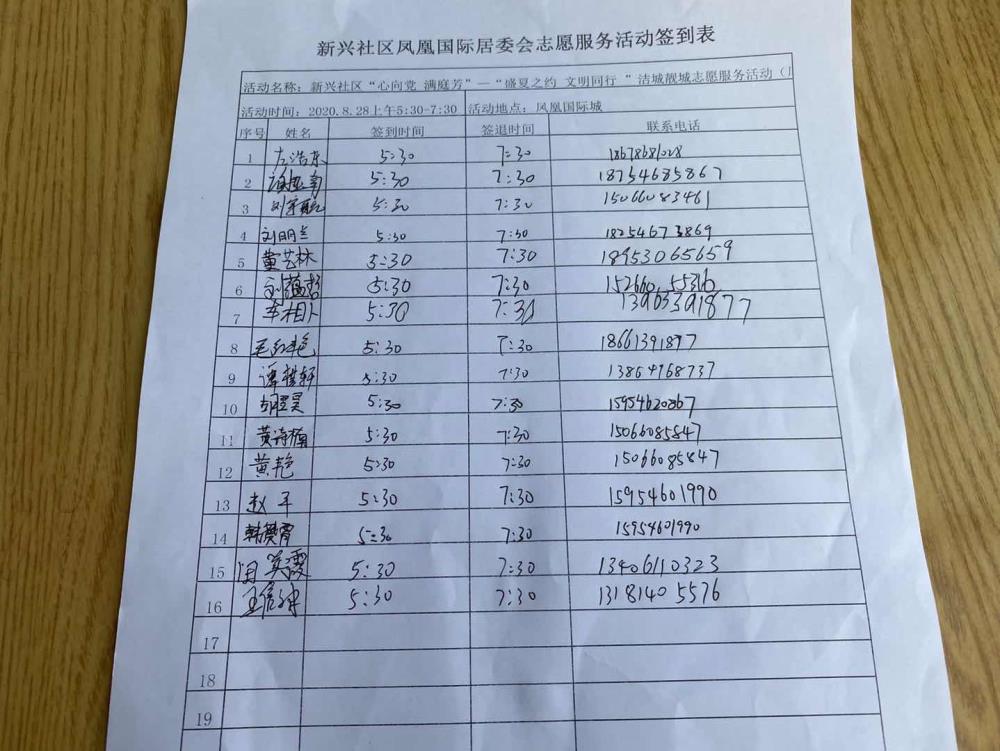 新兴社区凤凰国际居委会志愿服务活动签到表
活动名称：新兴社区“心向党 满庭芳”—“盛夏之约 文明同行 ”洁城靓城志愿服务活动（
活动时间：2020.8.28上午5:30-7:30 活动地点：凤凰国际城
序号 姓名 签到时间 签退时间 联系电话
1 左浩东 5:30 7:30 18678681028
2 5:30 7:30 18754685867
3 5:30 7:30 15066083461
4 刘明兰 5:30 7:30 18254673869
5 黄艺林 5:30 7:30 18953065659
6 刘蕴哲 5:30 7:30
7 李相卜 5:30 7:30 13963391877
8 毛红艳 5:30 7:30 18661391877
9 谭棋轩 5:30 7:30 13864768737
10 胡翌昊 5:30 7:30 15954620867
11 黄诗楠 5:30 7:30 15066085847
12 黄艳 5:30 7:30 15066085847
13 赵平 5:30 7:30 15954601990
14 韩樊霄 5:30 7:30 15954601990
15 闫英霞 5:30 7:30 13406110323
16 王信坤 5:30 7:30 13181405576
17
18
19